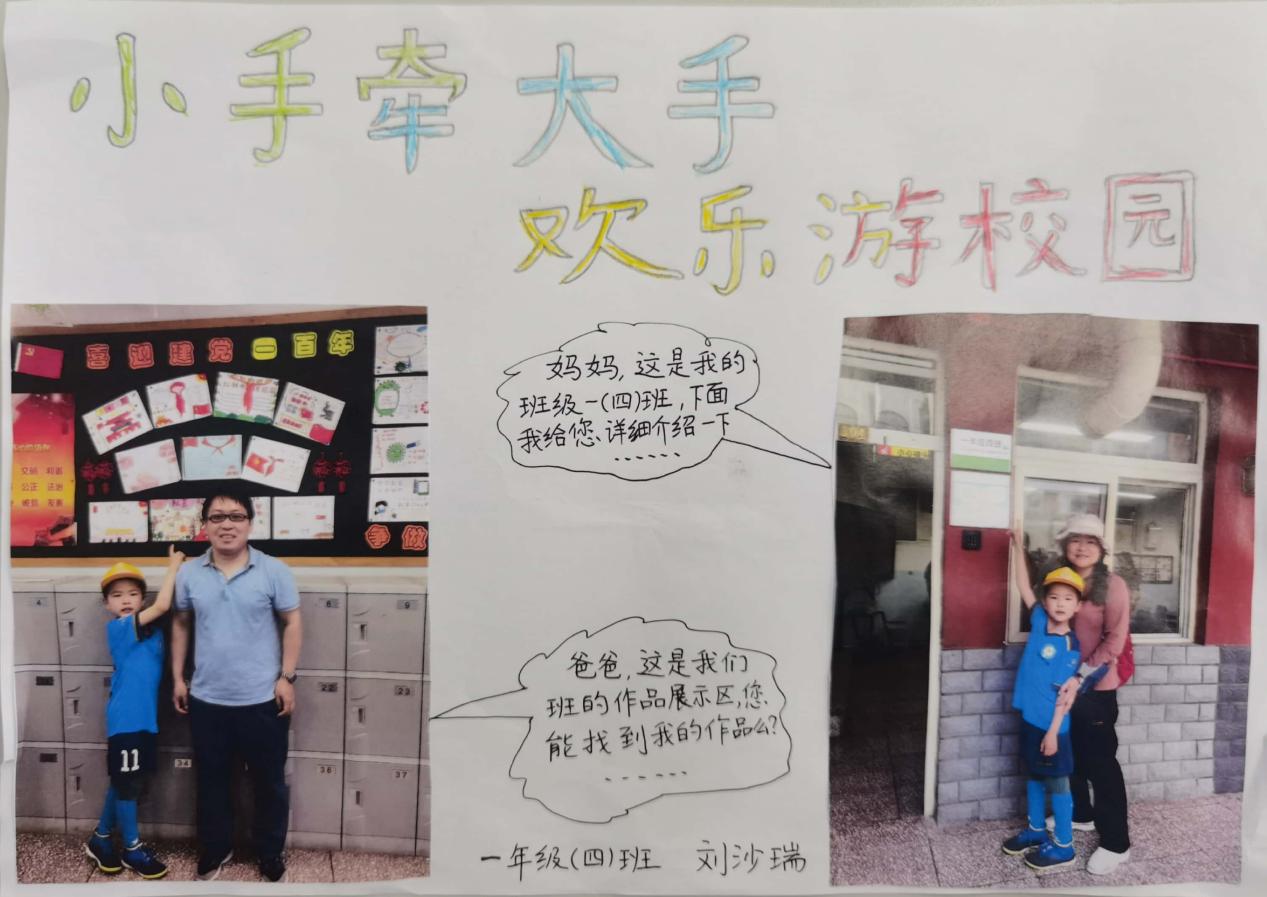 小手牵大手
欢乐游校园
喜迎建党一百年
文明 和谐
公正 法治
诚信 友善
争做
4
8
9
22
23
34
36
37
11
妈妈,这是我的
班级一(四)班,下面
我给您详细介绍一下
......
爸爸,这是我们
班的作品展示区,您
能找到我的作品么?
......
一年级(四)班 刘沙瑞